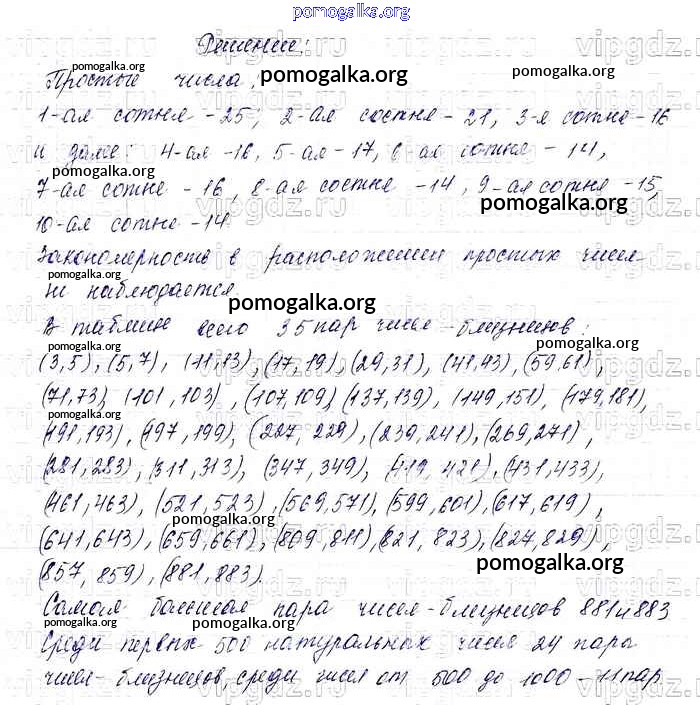 pomogalka.org
Решение:
Простые числа: pomogalka.org
1-ая сотня - 25; 2-ая сотня - 21, 3-я сотня - 16
и далее: 4-ая - 16, 5-ая - 17, 6-ая сотня - 14,
7-ая сотня - 16, 8-ая сотня - 14, 9-ая сотня - 15,
pomogalka.org
10-ая сотня - 14
Закономерность в расположении простых чисел
pomogalka.org
не наблюдается.
pomogalka.org
В таблице всего 35 пар чисел-близнецов:
(3,5), (5,7), (11,13), (17,19), (29,31), (41,43), (59,61),
(71,73), (101,103), (107,109), (137,139), (149,151), (179,181),
pomogalka.org
(191,193), (197,199), (227,229), (239,241), (269,271),
(281,283), (311,313), (347,349), (419,421), (431,433),
(461,463), (521,523), (569,571), (599,601), (617,619),
pomogalka.org
(641,643), (659,661), (809,811), (821,823), (827,829),
pomogalka.org
(857,859), (881,883).
Самая большая пара чисел-близнецов 881 и 883
pomogalka.org pomogalka.org
Среди первых 500 натуральных чисел 24 пара
чисел-близнецов, среди чисел от 500 до 1000 - 11 пар